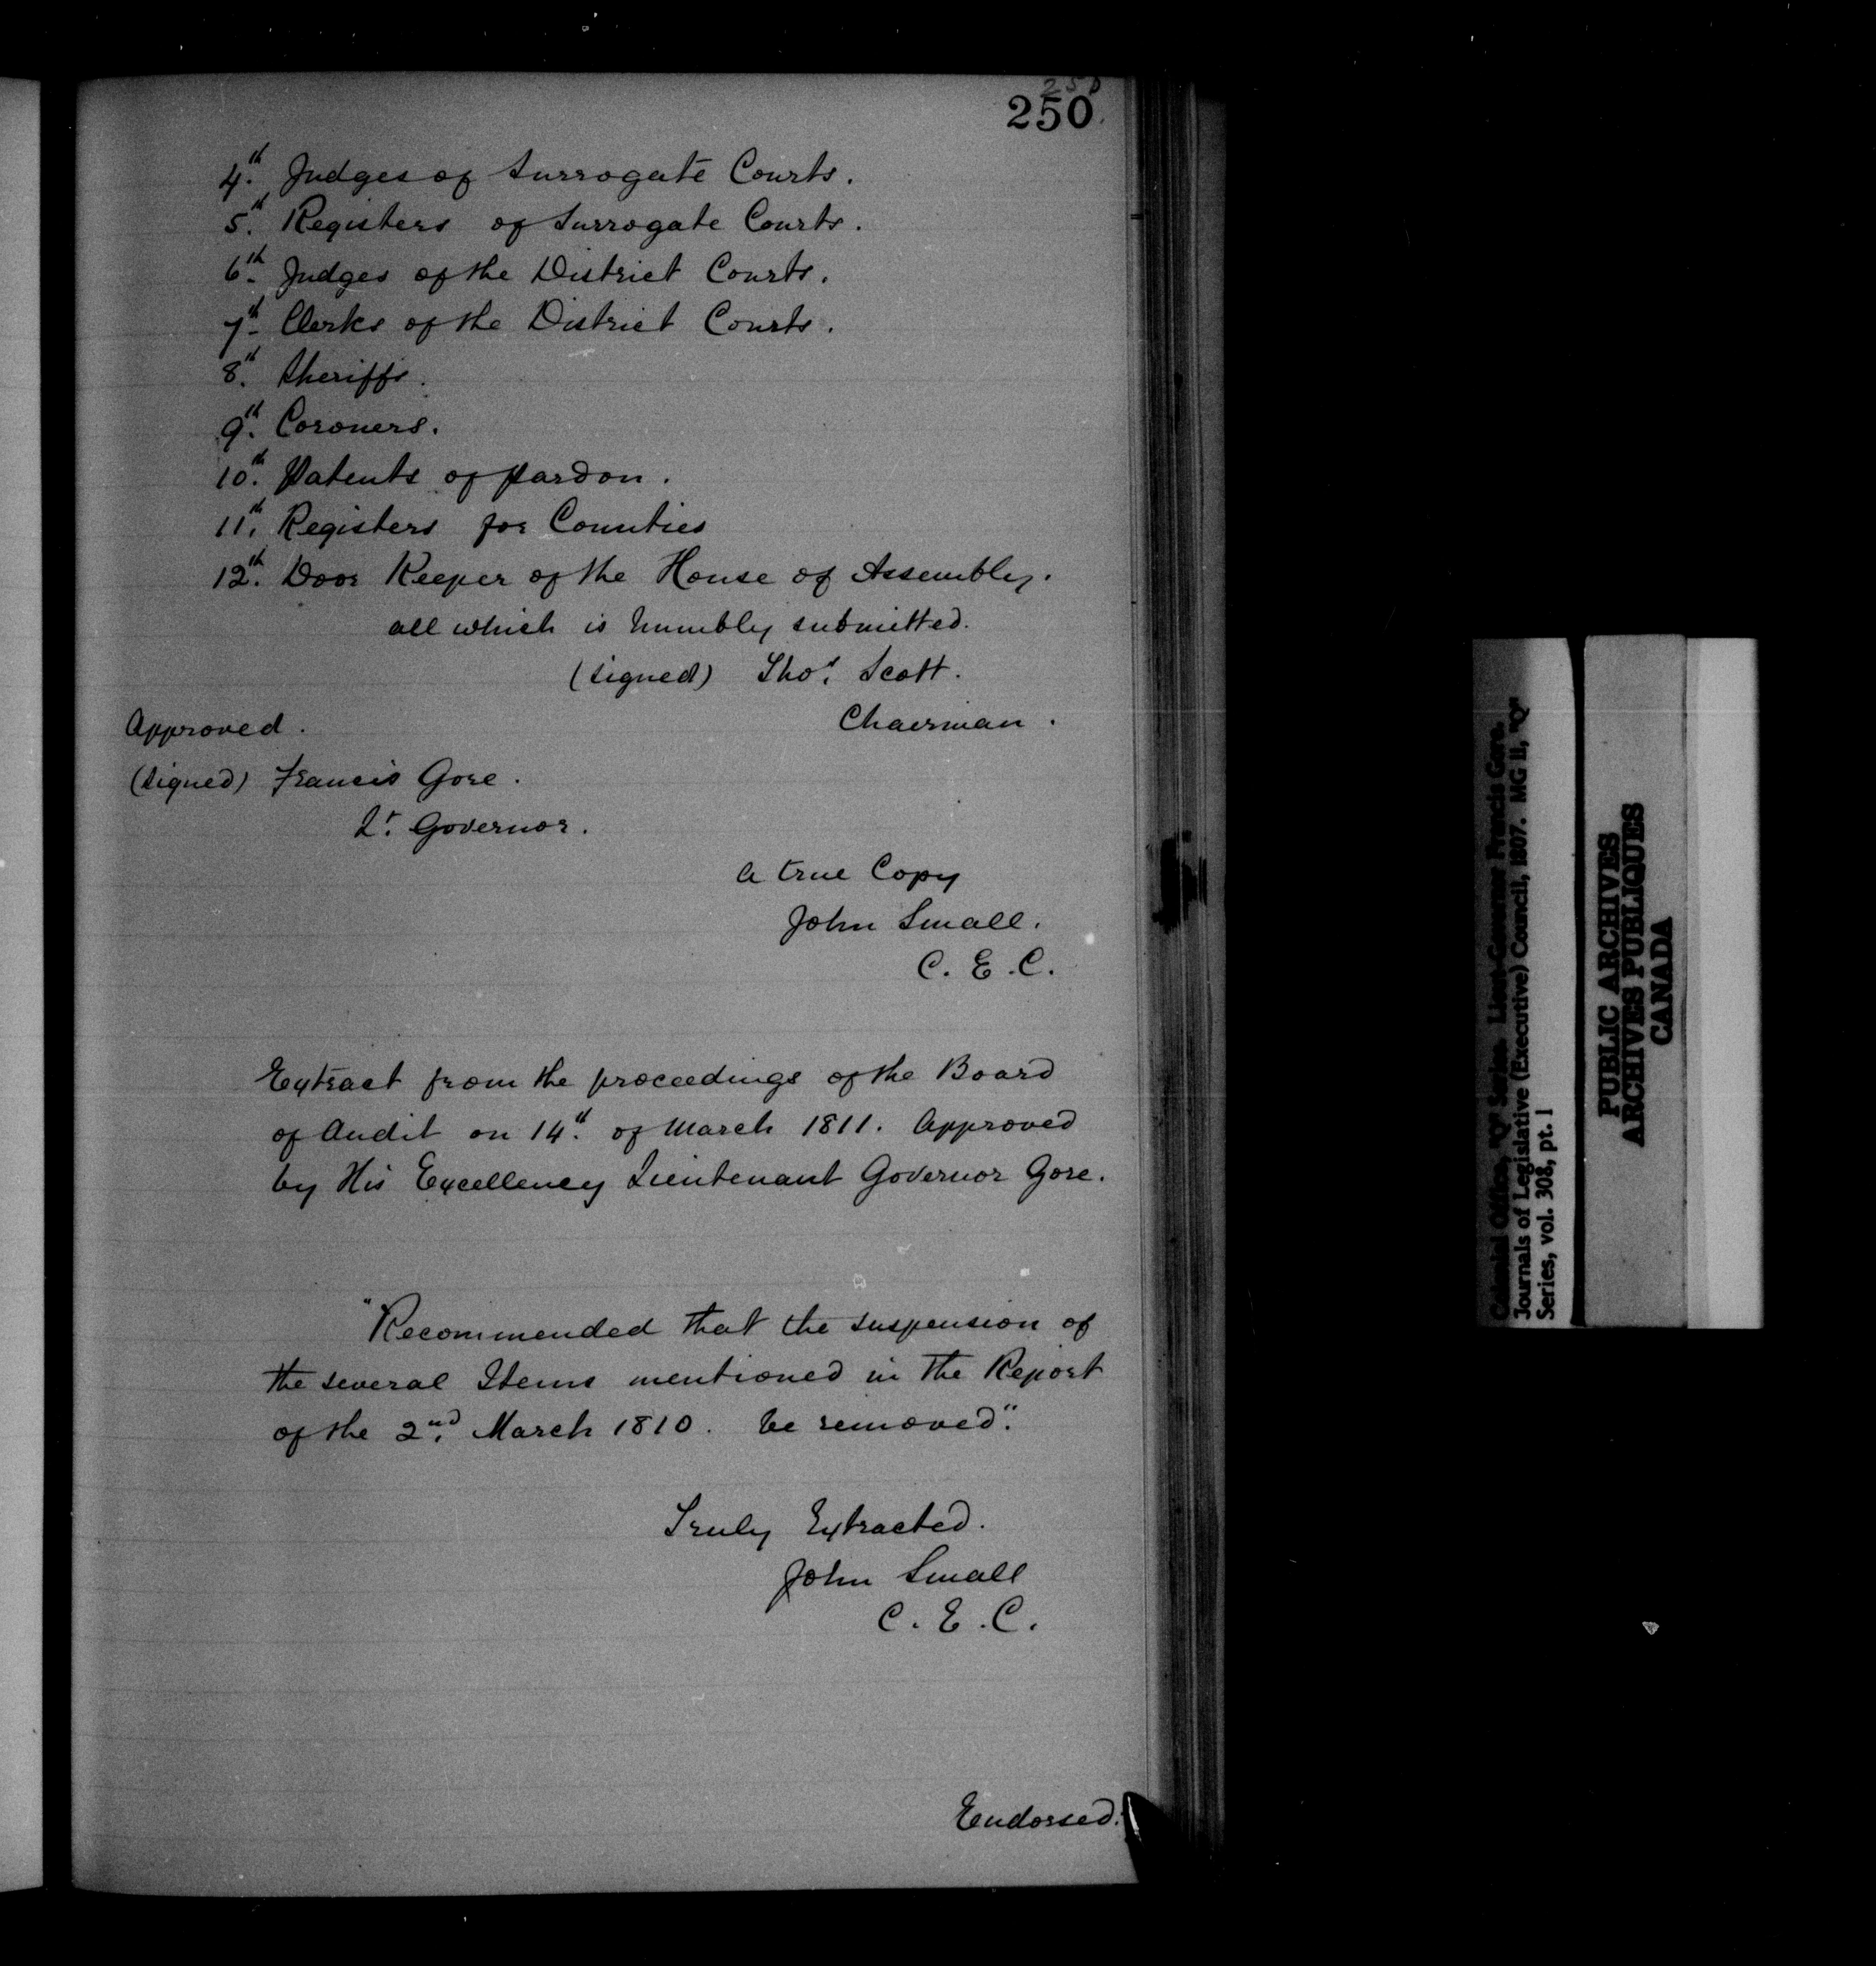 250
250.
4th. Judges of Surrogate Courts.
5th. Registers of Surrogate Courts.
6th. Judges of the District Courts.
7th. Clerks of the District Courts.
8th. Sheriffs.
9th. Coroners.
10th. Patents of pardon.
11th. Registers for Counties
12th. Door Keeper of the House of Assembly.
all which is humbly submitted.
(signed) Thos. Scott.
Chairman.
Approved.
(signed) Francis Gore.
Lt. Governor.
a true Copy
John Small.
C. E. C.
Extract from the proceedings of the Board
of Audit on 14th. of March 1811. Approved
by His Excellency Lieutenant Governor Gore.
"Recommended that the suspension of
the several Items mentioned in the Report
of the 2nd. March 1810. be removed."
Truly Extracted.
John Small
C. E. C.
Endorsed.
Colonial Office, "Q" Series. Lieut-Governor Francis Gore.
Journals of Legislative (Executive) Council, 1807. MG 11, "Q"
Series, vol. 308, pt. 1
PUBLIC ARCHIVES
ARCHIVES PUBLIQUES
CANADA